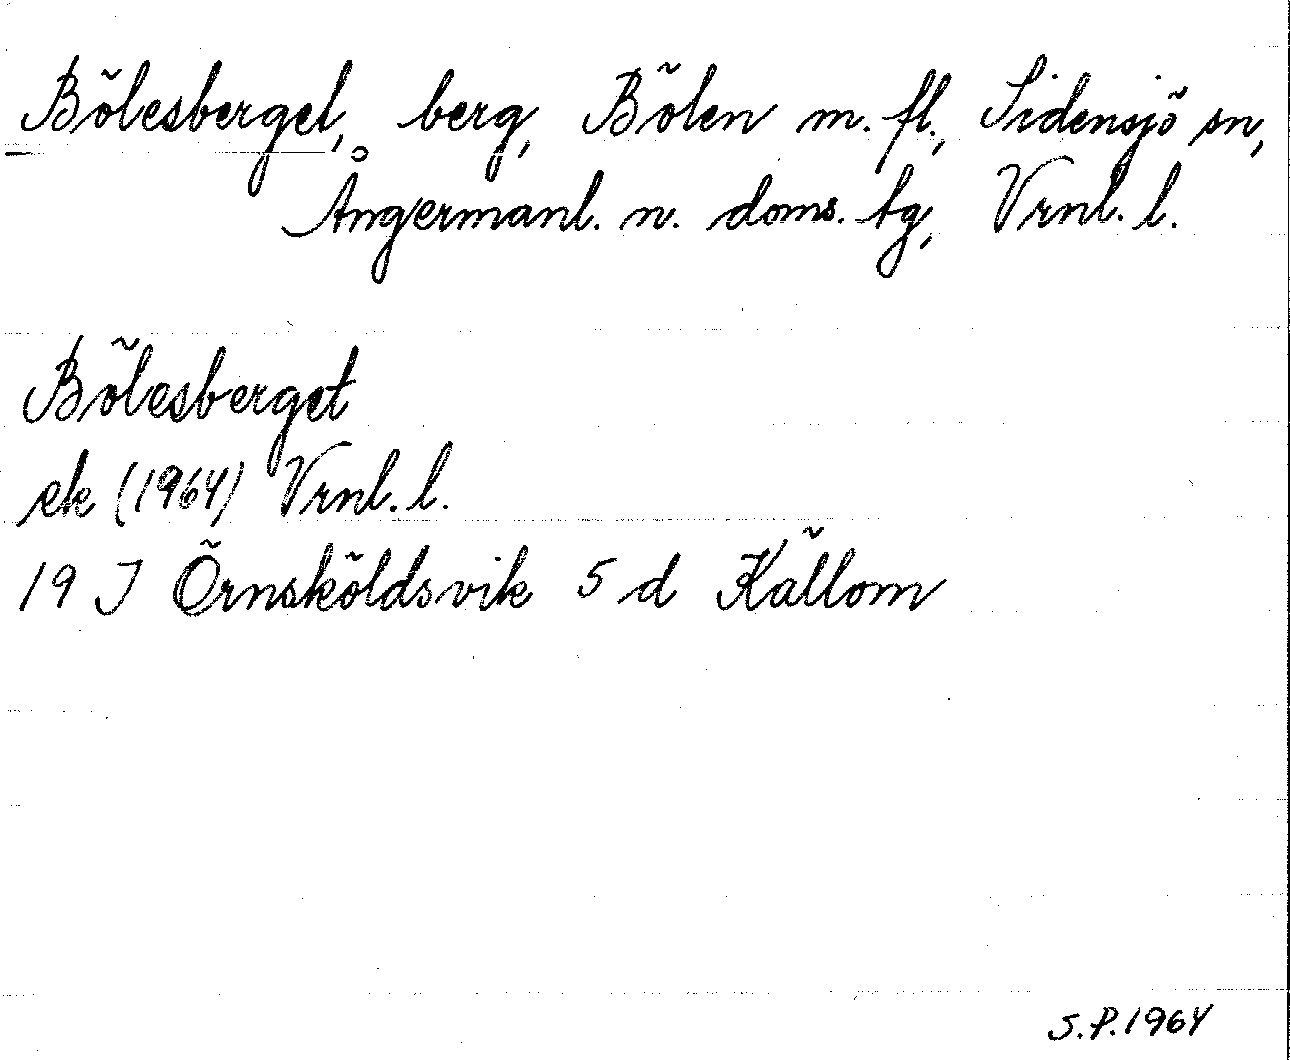 Bölesberget, berg, Bölen m. fl., Sidensjö sn,
Ångermanl. n. doms. tg, Vrnl. l.
Bölesberget
ek (1964) Vrnl. l.
19 J Örnsköldsvik 5 d Källom
S.P. 1964